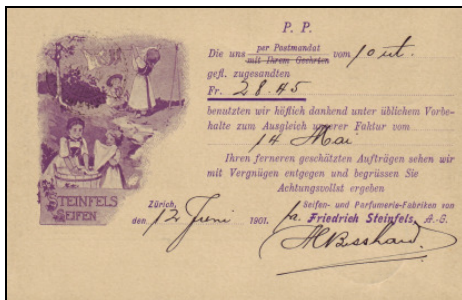 P. P.
Die uns per Postmandat mit Ihrem Geehrten vom 10 ct.
gefl. zugesandten
Fr. 28.45
benutzten wir höflich dankend unter üblichem Vorbe-
halte zum Ausgleich unserer Faktur vom
14 Mai
Ihren ferneren geschätzten Aufträgen sehen wir
mit Vergnügen entgegen und begrüssen Sie
Achtungsvollst ergeben
STEINFELS
SEIFEN
Zürich,
den 12 Juni 1901.
Seifen- und Parfumerie-Fabriken von
pa. Friedrich Steinfels, A.-G.